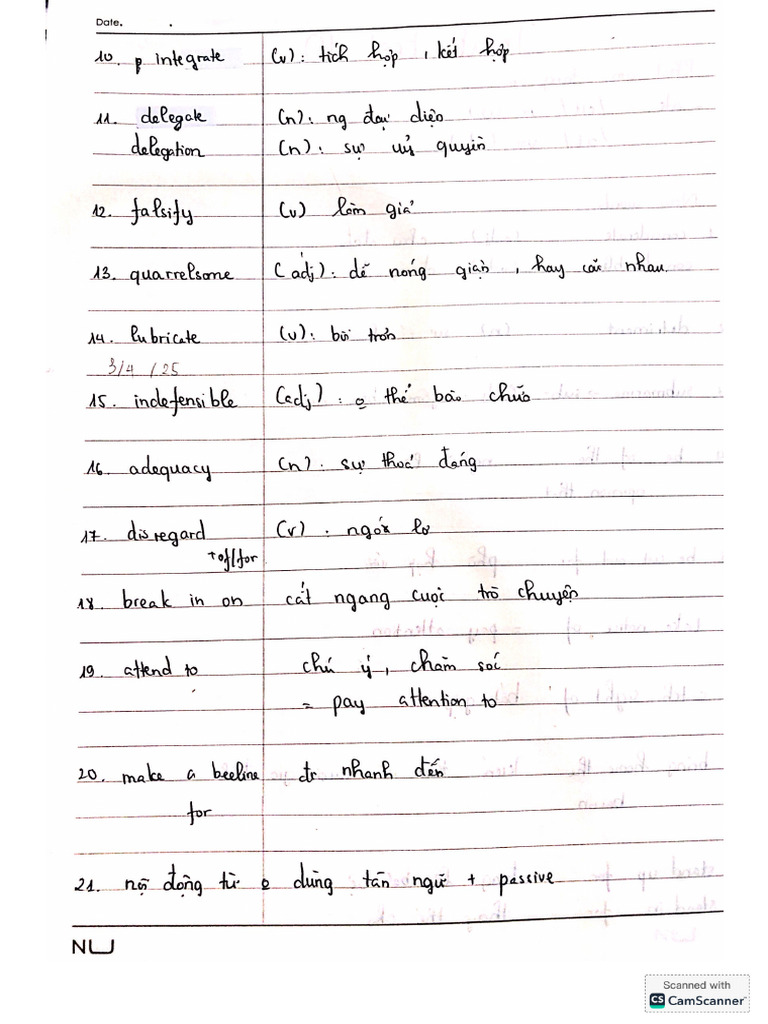 Date.
10. p integrate (v): tích hợp, kết hợp
11. delegate (n): ng đại diện
delegation (n): sự uỷ quyền
12. falsify (v) làm giả
13. quarrelsome (adj): dễ nóng giận, hay cãi nhau.
14. lubricate (v): bôi trơn
3/4 /25
15. indefensible (adj): o thể bào chữa
16. adequacy (n): sự thoả đáng
17. disregard (v): ngó lơ
+of/for
18. break in on cắt ngang cuộc trò chuyện
19. attend to chú ý, chăm sóc
= pay attention to
20. make a beeline đi nhanh đến
for
21. nội động từ o dùng tân ngữ + passive
NU
Scanned with
CS CamScanner